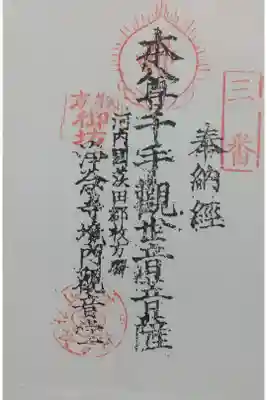 三番
奉納經
本尊千手觀世音菩薩
河内國茨田郡枚方驛
御坊
淨念寺境内觀音堂